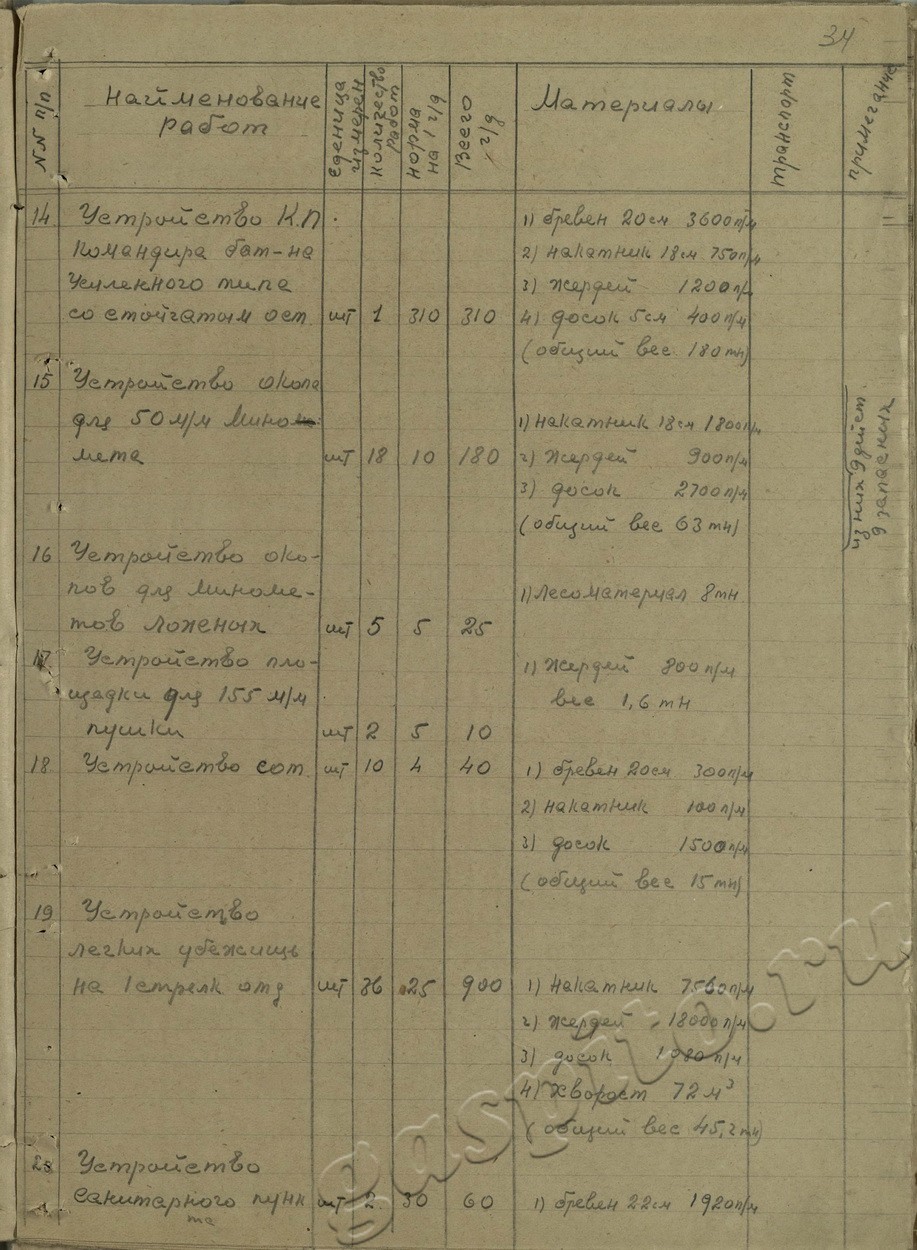 34
NN п/п
Найменование работ
Еденица измерен
Количество работ
норма на 1 ч/д
Всего ч/д
Материалы
Транспорт
примечание
14 Устройство К.П 1) бревен 20см 3600п/м "
командира бат-на 2) накатник 18см 750п/м
усиленного типа 3) жердей 1200п/м
со стойчатым ост шт 1 310 310 4) досок 5см 400п/м
(общий вес 180тн)
15 Устройство окопа
для 50 м/м мино- 1) накатник 18см 1800п/м
мета шт 18 10 180 2) жердей 900п/м
3) досок 2700п/м
(общий вес 63тн)
из них 9 дейст
9 запасных
16 Устройство око-
пов для миноме- 1) лесоматериал 8тн
тов ложных шт 5 5 25
17 Устройство пло- 1) жердей 800п/м
щадки для 155 м/м вес 1,6тн
пушки шт 2 5 10
18 Устройство сот шт 10 4 40 1) бревен 20см 300п/м
2) накатник 100п/м
3) досок 1500п/м
(общий вес 15тн)
19 Устройство
легких убежищь
на 1 стрелк отд шт 36 25 900 1) накатник 7560п/м
2) жердей 18000п/м
3) досок 1080п/м
4) хворост 72м³
(общий вес 45,2тн)
20 Устройство
санитарного пунк шт 2 30 60 1) бревен 22см 1920п/м
та
gaspito.ru